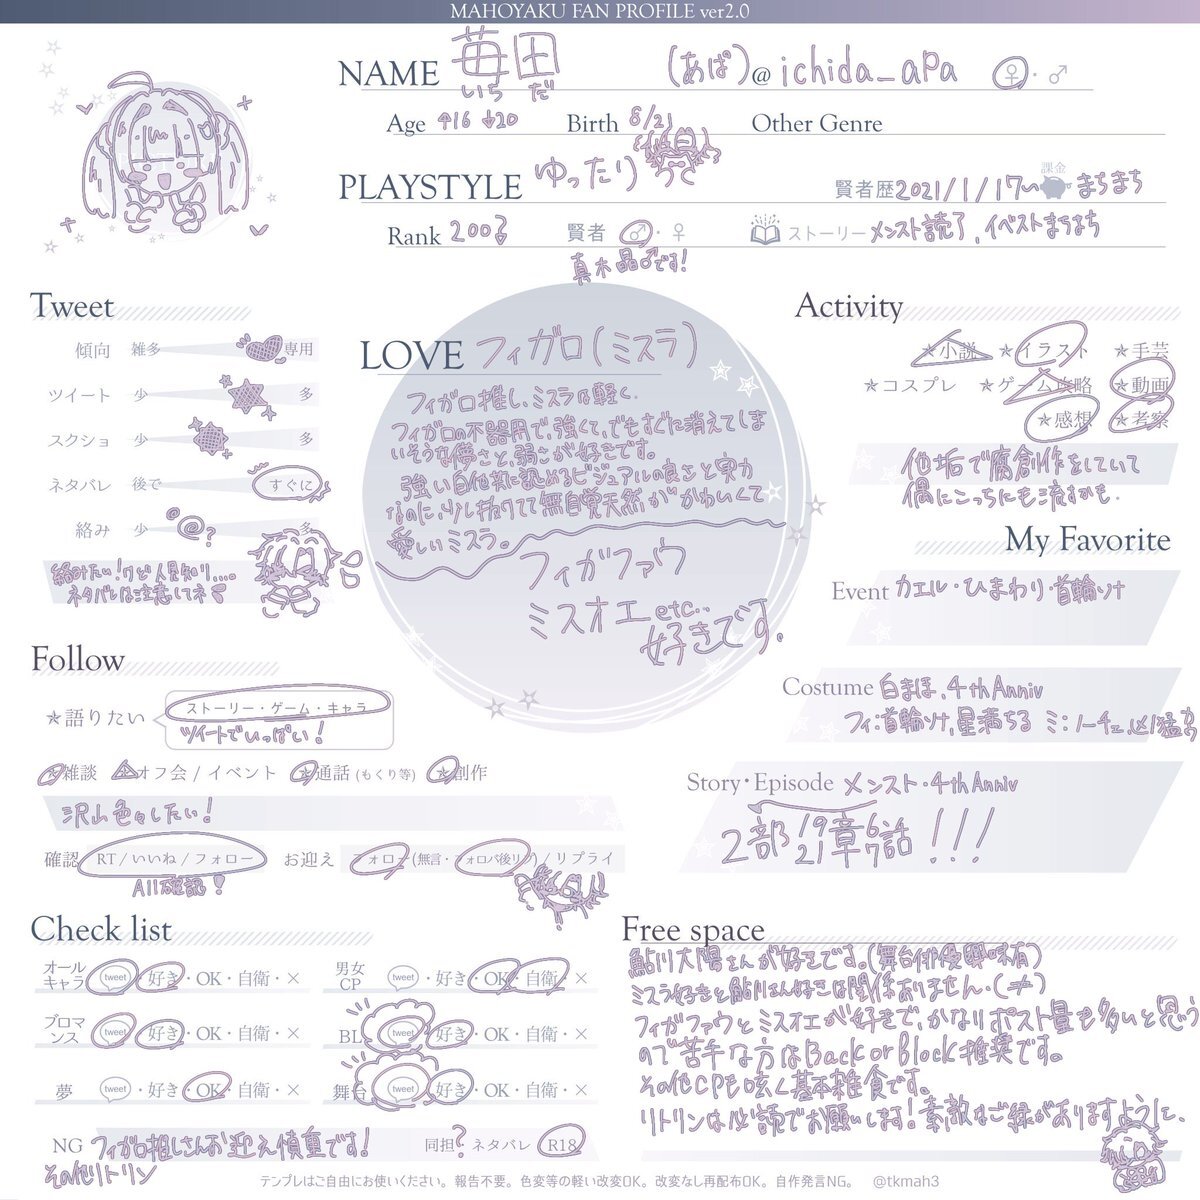 MAHOYAKU FAN PROFILE ver2.0
NAME 苺田 (あぱ)@ichida_apa ♀・♂
いちだ
Age ↑16 ↓20 Birth 8/21 Other Genre
PLAYSTYLE ゆったり 賢者歴 2021/1/17〜 課金 まちまち
Rank 200↓ 賢者 ♂・♀ ストーリー メンスト読了、イベストまちまち
真木晶♂です!
Tweet
傾向 雑多 専用
ツイート 少 多
スクショ 少 多
ネタバレ 後で すぐに
絡み 少 ? 多
絡みたい!けど人見知り....
ネタバレは注意してネ
LOVE フィガロ(ミスラ)
フィガロ推し、ミスラは軽く.
フィガロの不器用で、強くて、でもすぐに消えてしま
いそうな儚さと、弱さが好きです。
強い自他共に認めるビジュアルの良さと実力
なのに、少し抜けてて無自覚天然がかわいくて
愛しいミスラ。
フィガファウ
ミスオエetc..
好きです。
Activity
★小説 ★イラスト ★手芸
★コスプレ ★ゲーム攻略 ★動画
★感想 ★考察
他垢で腐創作をしていて
偶にこっちにも流すかも.
My Favorite
Event カエル・ひまわり・首輪ソナ
Costume 白まほ、4th Anniv
フィ:首輪ソナ,星満ちる ミ:ノーチェ,凶猛高
Story・Episode メンスト・4th Anniv
2部19章6話
21章7話!!!
Follow
★語りたい ストーリー・ゲーム・キャラ
ツイートでいっぱい!
★雑談 ★オフ会 / イベント ★通話 (もくり等) ★創作
沢山色々したい!
確認 RT / いいね / フォロー お迎え フォロー (無言・フォロバ後リプ) / リプライ
All確認!
Check list
オールキャラ tweet・好き・OK・自衛・×
男女CP tweet・好き・OK・自衛・×
ブロマンス tweet・好き・OK・自衛・×
BL tweet・好き・OK・自衛・×
夢 tweet・好き・OK・自衛・×
舞台 tweet・好き・OK・自衛・×
NG フィガロ推しさんお迎え慎重です! 同担?・ネタバレ R18
その他リトリン
Free space
鮎川太陽さんが好きです。(舞台俳優興味有)
ミスラ好きと鮎川さん好きは関係ありません.(≠)
フィガファウとミスオエが好きで、かなりポスト量も多いと思う
ので苦手な方はBack or Block推奨です。
その他CPも呟く基本雑食です。
リトリンは必読でお願いします!素敵なご縁がありますように、
テンプレはご自由にお使いください。報告不要。色変等の軽い改変OK。改変なし再配布OK。自作発言NG。 @tkmah3